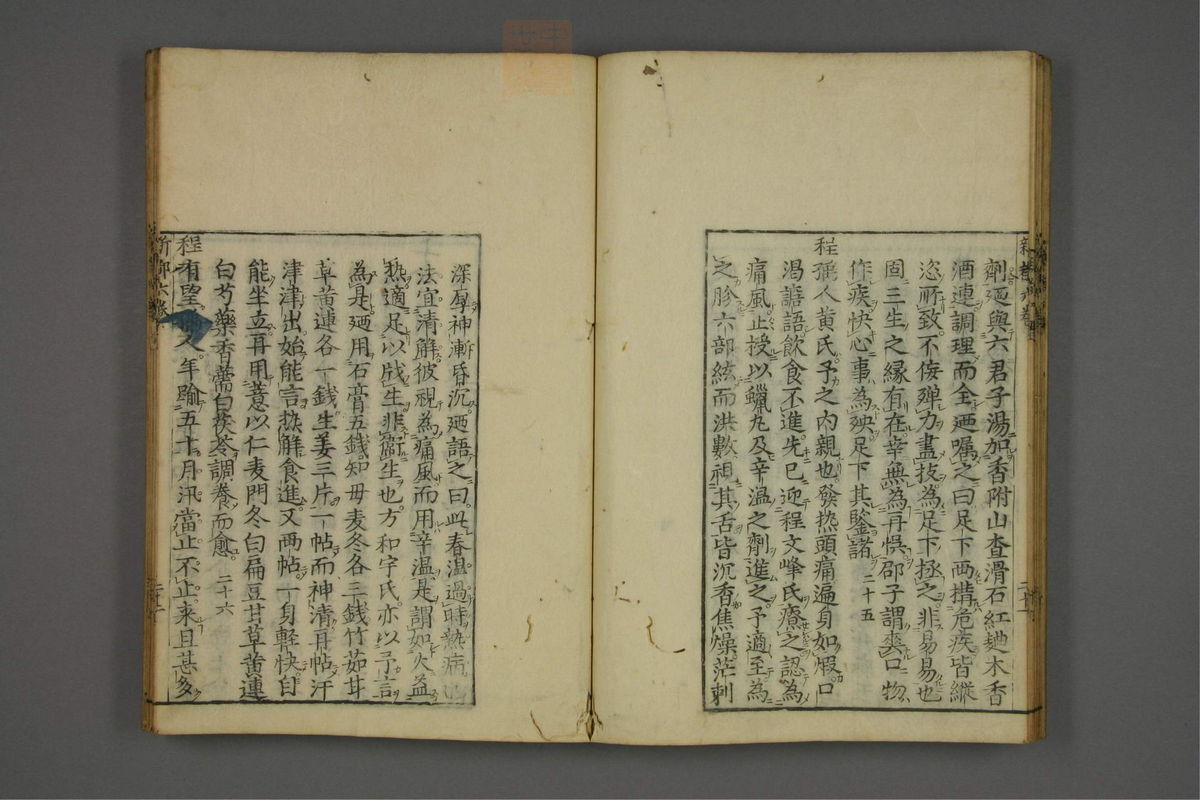 劑廼與六君子湯加香附山査滑石紅麯木香
酒連調理而全廼嘱之曰足下两搆危疾皆縦
恣所致不佞殫力盡技為足下拯之非易易也
固三生之縁有在幸無為再悞邵子謂爽口物
作疾快心事為殃足下其鑒諸 二十五
程孺人黄氏予之内親也發热頭痛遍身如煆口
渇譫語飲食不進先已迎程文峰氏療之認為
痛風止授以蠟丸及辛温之劑進之予適至為
之胗六部絃而洪數視其舌皆沉香焦燥茫刺
深厚神漸昏沉廼語之曰此春温過時熱病
法宜清解彼視為痛風而用辛温是謂如火益
热適足以戕生非衛生也方和宇氏亦以予言
為是廼用石膏五錢知母麦冬各三錢竹茹甘
草黄連各一錢生姜三片一帖而神清再帖汗
津津出始能言热解食進又两帖一身輕快自
能坐立再用薏以仁麦門冬白扁豆甘草黄連
白芍藥香薷白茯苓調養而愈 二十六
程有望 人年踰五十月汛當止不止来且甚多